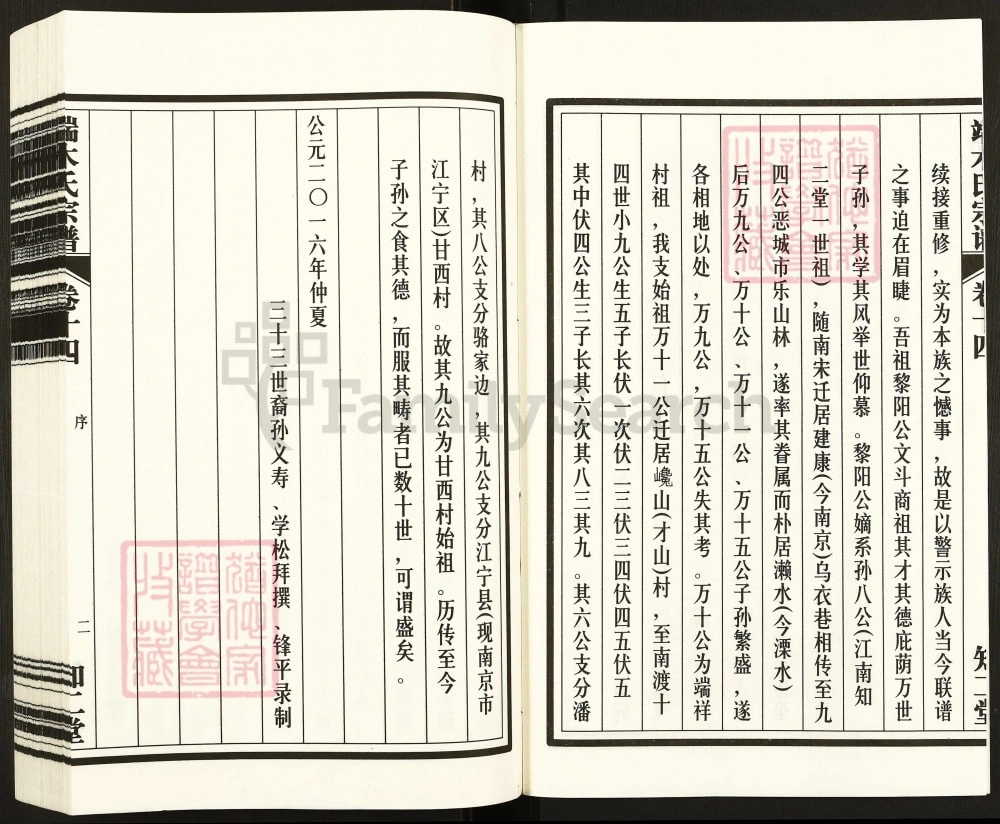 端木氏宗谱
卷十四
知二堂
续接重修，实为本族之憾事，故是以警示族人当今联谱
之事迫在眉睫。吾祖黎阳公文斗商祖其才其德庇荫万世
子孙，其学其风举世仰慕。黎阳公嫡系孙八公(江南知
二堂一世祖)，随南宋迁居建康(今南京)乌衣巷相传至九
四公恶城市乐山林，遂率其眷属而朴居濑水(今溧水)
后万九公、万十公、万十一公、万十五公子孙繁盛，遂
各相地以处，万九公，万十五公失其考。万十公为端祥
村祖，我支始祖万十一公迁居巉山(才山)村，至南渡十
四世小九公生五子长伏一次伏二三伏三四伏四五伏五
其中伏四公生三子长其六次其八三其九。其六公支分潘
村，其八公支分骆家边，其九公支分江宁县(现南京市
江宁区)甘西村。故其九公为甘西村始祖。历传至今
子孙之食其德，而服其畴者已数十世，可谓盛矣。
公元二〇一六年仲夏
三十三世裔孙义寿、学松拜撰、锋平录制
端木氏宗谱
卷十四
序
二
知二堂
FamilySearch